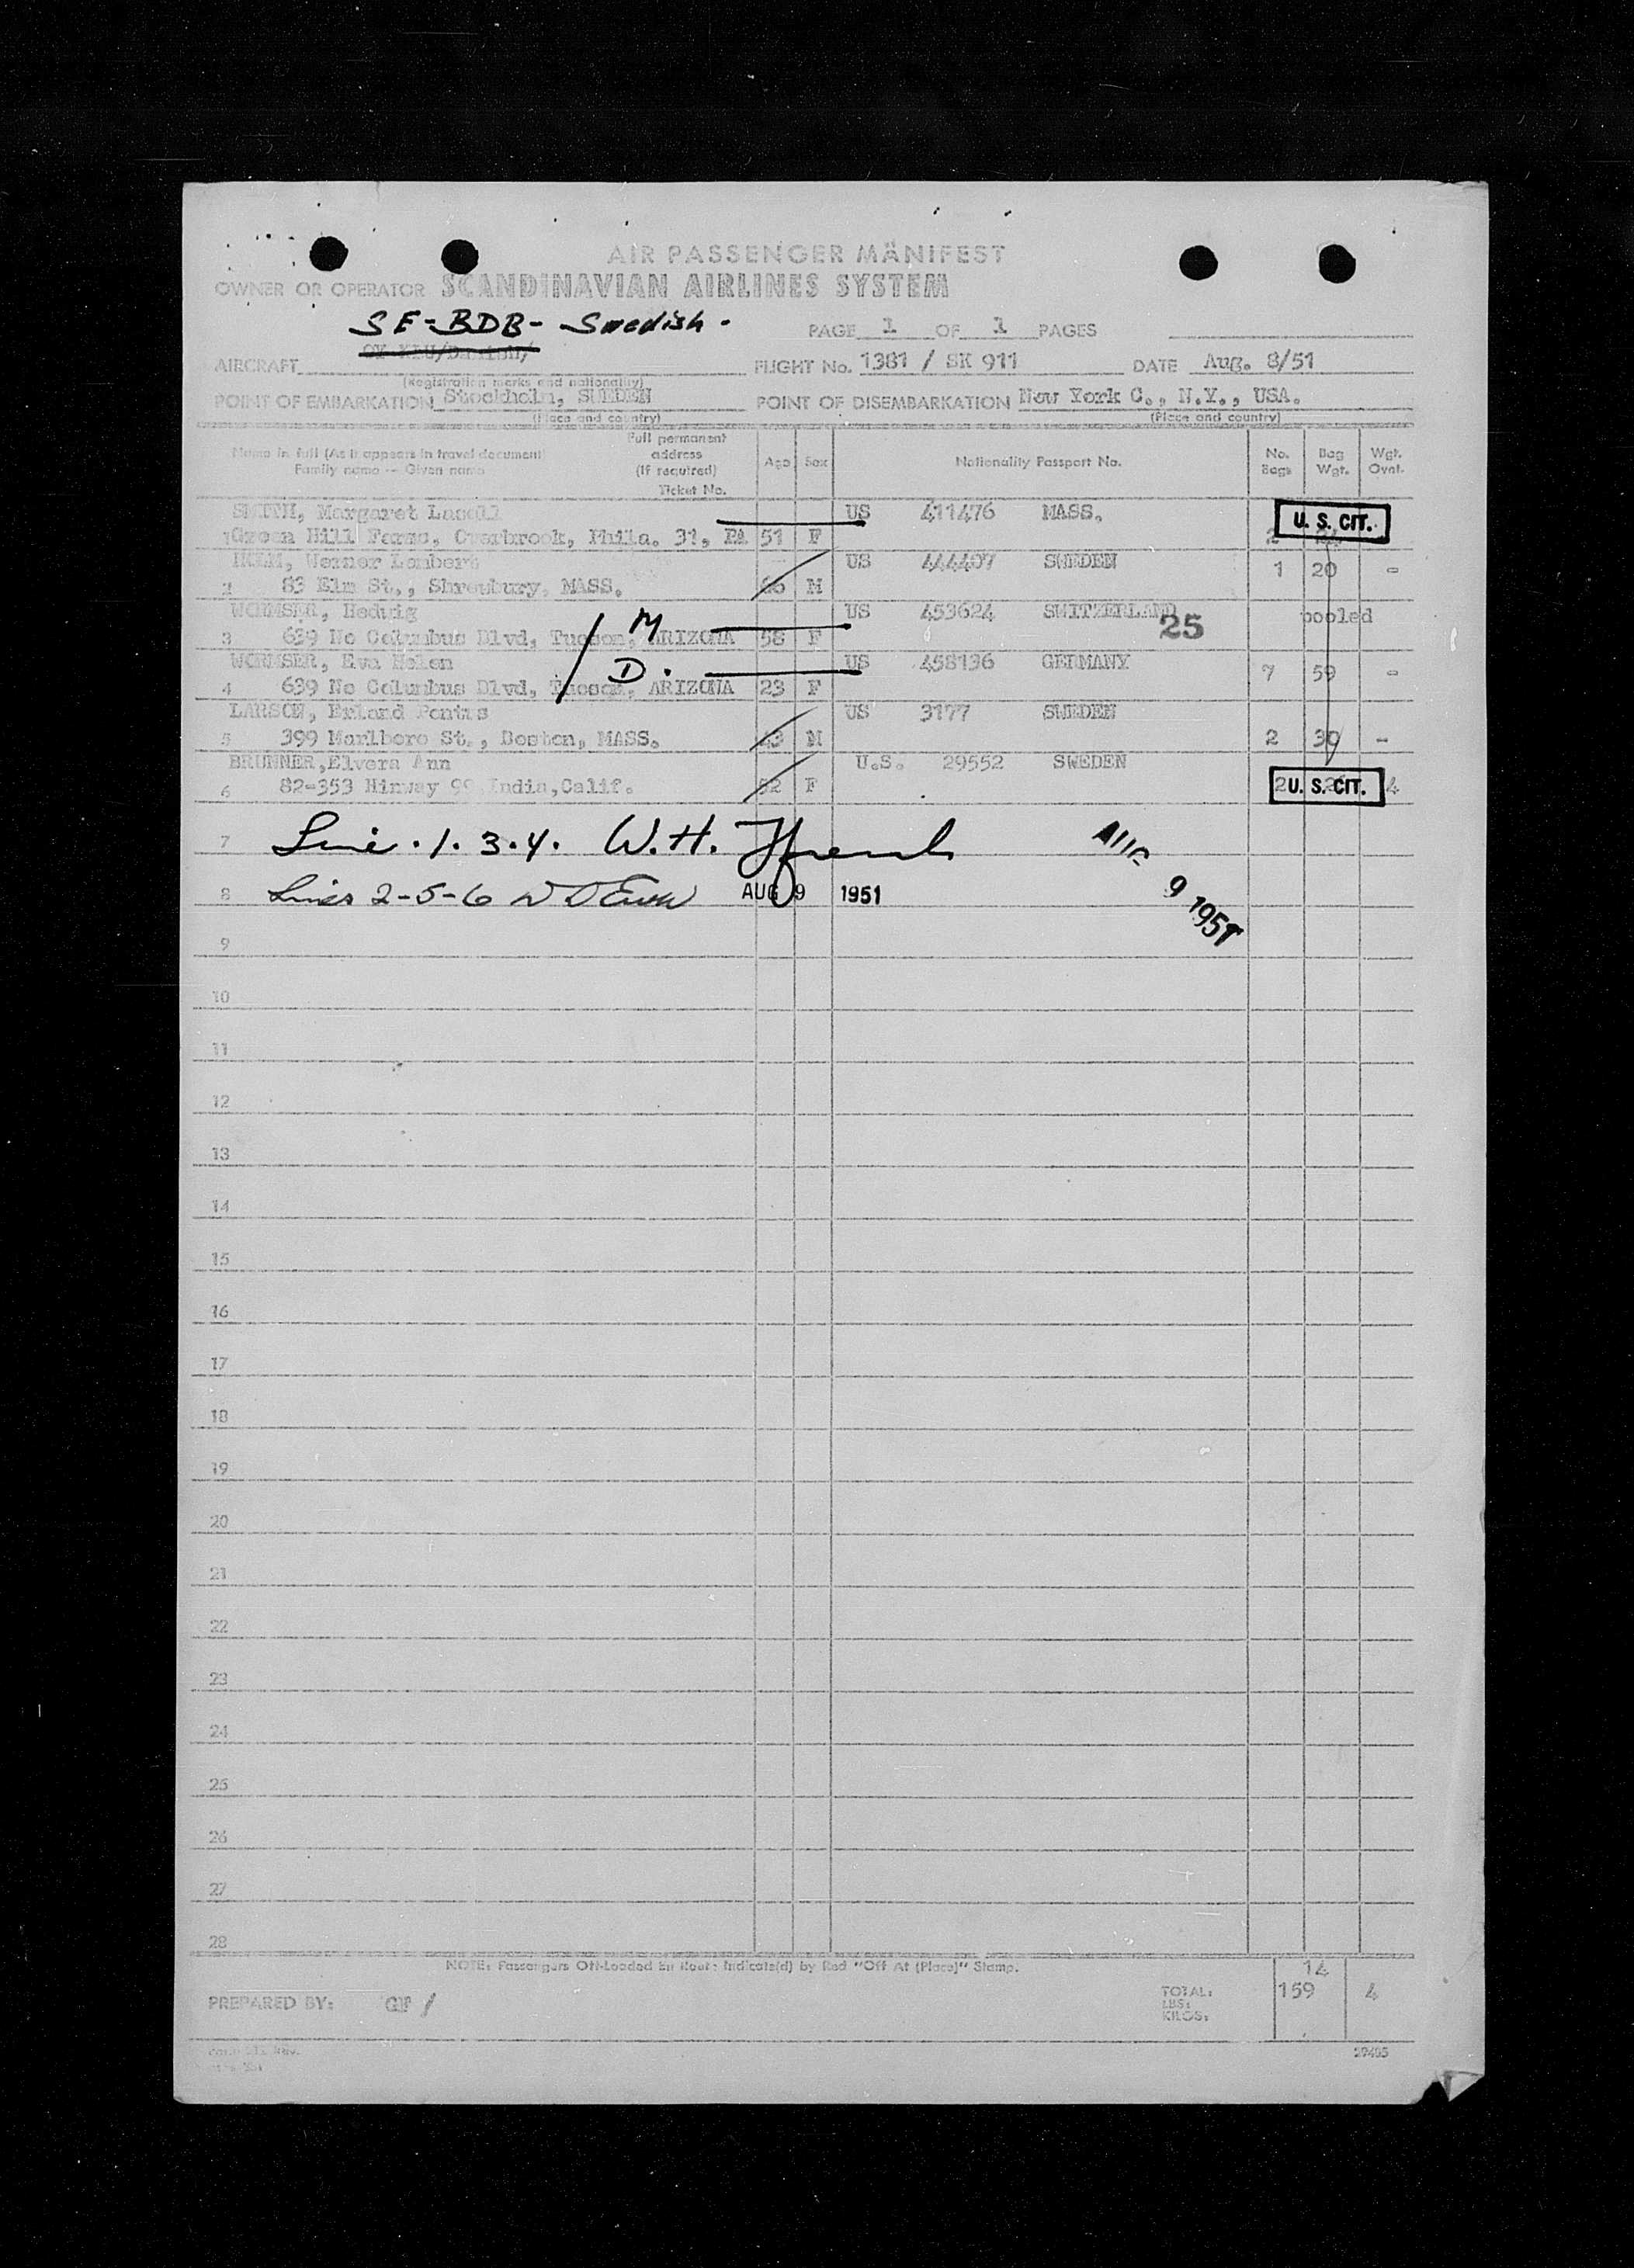 AIR PASSENGER MANIFEST
OWNER OR OPERATOR SCANDINAVIAN AIRLINES SYSTEM
SE-BDB- Swedish.
PAGE 1 OF 1 PAGES
AIRCRAFT FLIGHT No. 1381 / SK 911 DATE Aug. 8/51
(Registration marks and nationality)
POINT OF EMBARKATION Stockholm, SWEDEN POINT OF DISEMBARKATION New York C., N.Y., USA.
(Place and country) (Place and country)
Name in full (As it appears in travel document)
Family name -- Given name
Full permanent
address
(If required)
Ticket No.
Age Sex Nationality Passport No. No. Bags Bag Wgt. Wgt. Ovnt.
SMITH, Margaret Lasell US 411476 MASS. U. S. CIT.
1 Green Hill Farms, Overbrook, Phila. 31, PA 51 F 2
HOLM, Werner US 444407 SWEDEN 1 20 -
2 83 Elm St., Shrewbury, MASS. M
WORMSER, Hedwig US 453624 SWITZERLAND 25 pooled
3 639 No Columbus Blvd, Tucson, ARIZONA 58 F M
WORMSER, Eva Helen D. US 458136 GERMANY 7 59 -
4 639 No Columbus Blvd, Tucson, ARIZONA 23 F
LARSON, Erland Pontus US 3177 SWEDEN
5 399 Marlboro St., Boston, MASS. 43 M 2 30 -
BRUNNER, Elvera Ann U.S. 29552 SWEDEN
6 82-353 Hiwway 99 India, Calif. 52 F 2 U. S. CIT. 4
7 Line . 1. 3. 4. W. H. French AUG 9 1951
8 Lines 2-5-6 AUG 9 1951
9
10
11
12
13
14
15
16
17
18
19
20
21
22
23
24
25
26
27
28
NOTE: Passengers Off-Loaded En Route Indicate(d) by Red "Off At (Place)" Stamp.
PREPARED BY: GF /
TOTAL: 14
LBS:
KILOS: 159 4
29405